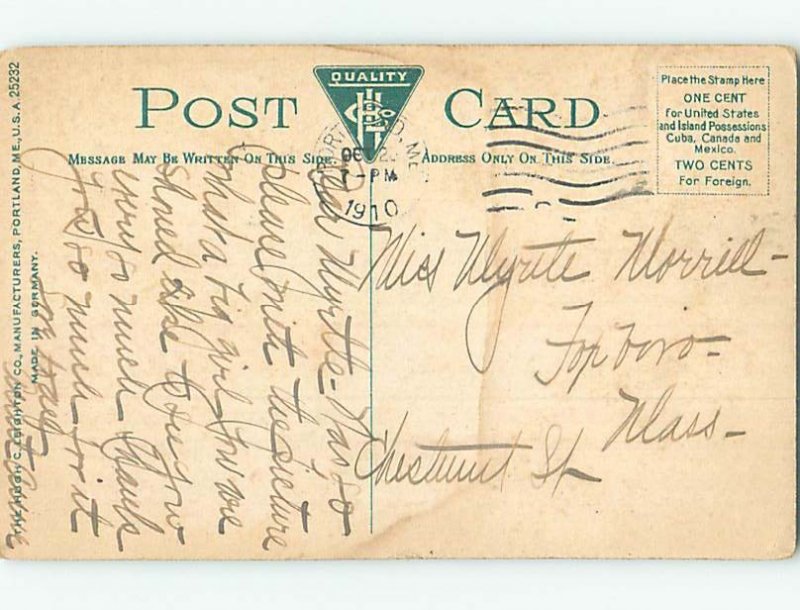 POST CARD
QUALITY
MESSAGE MAY BE WRITTEN ON THIS SIDE.
ADDRESS ONLY ON THIS SIDE.
Place the Stamp Here
ONE CENT
for United States
and Island Possessions
Cuba, Canada and
Mexico.
TWO CENTS
For Foreign.
7-PM
1910
THE HUGH C. LEIGHTON CO., MANUFACTURERS, PORTLAND, ME., U.S.A. 25232
MADE IN GERMANY.
Dear Myrtle - Was so
please with the picture
what a big girl you are
should like to see you
ever so much Thanks
you so much for it
Miss Myrtle Morrill-
Foxboro-
Mass-
Chestnut St